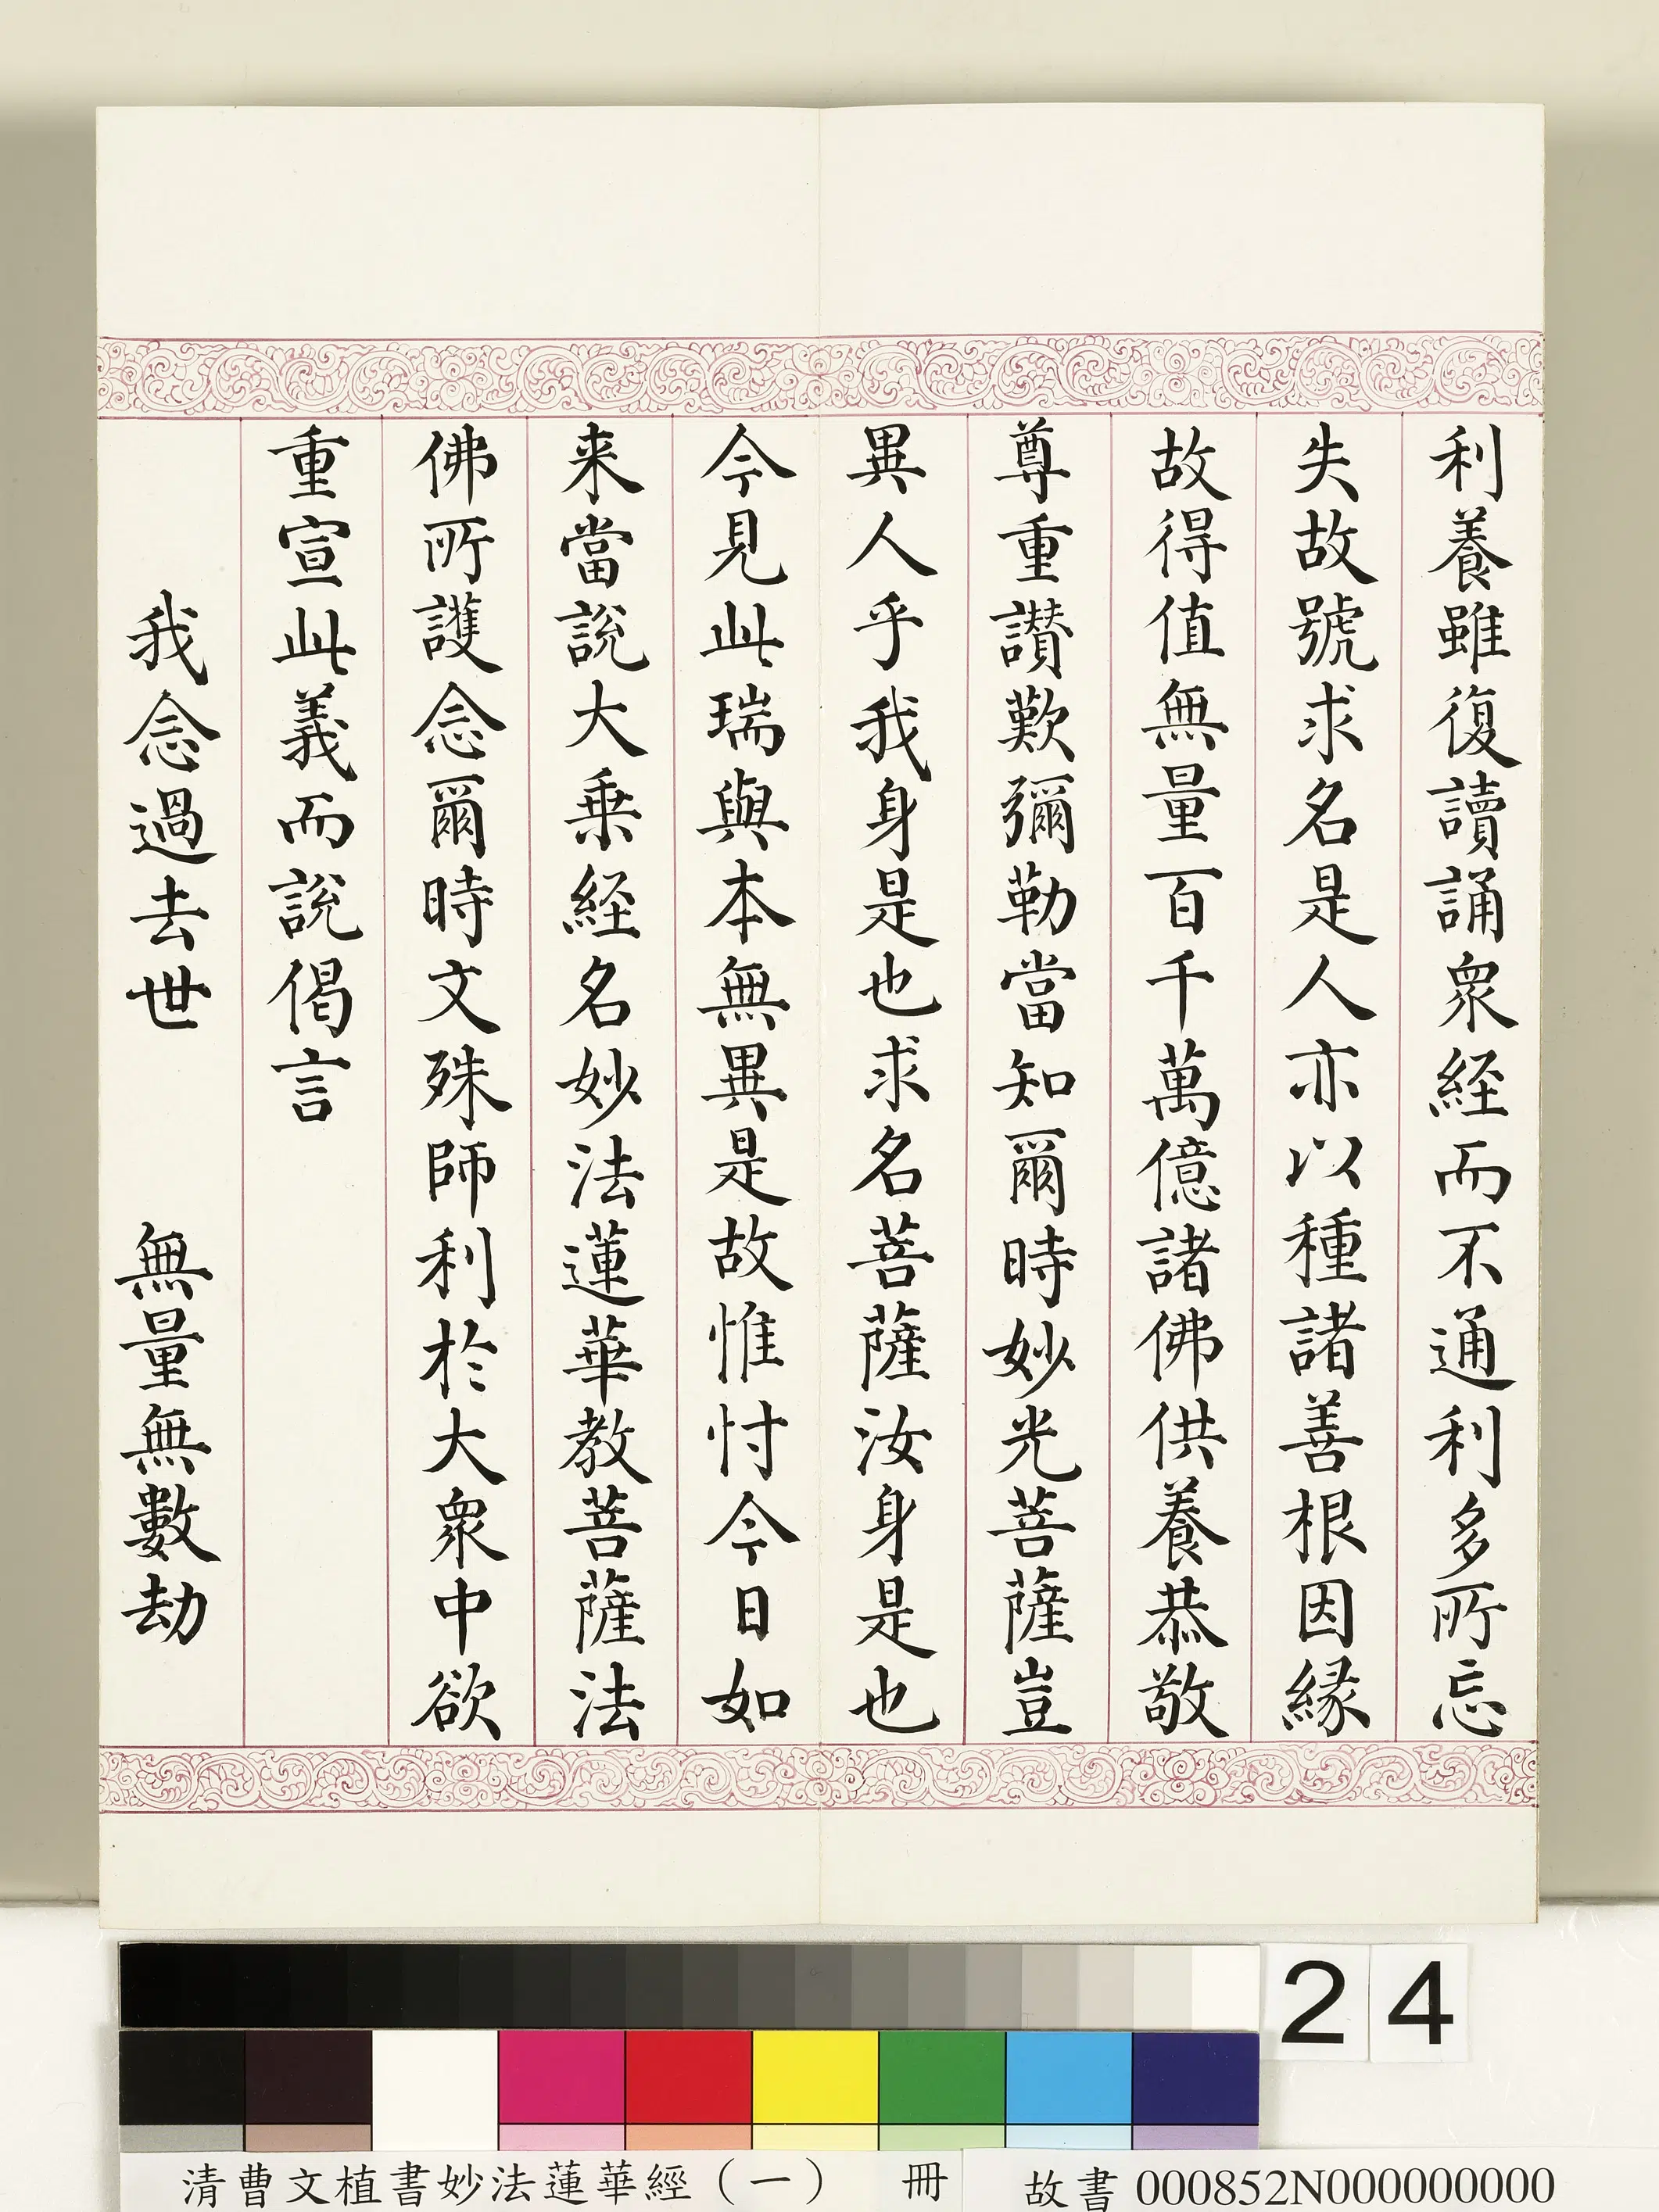 利養雖復讀誦衆経而不通利多所忘
失故號求名是人亦以種諸善根因縁
故得值無量百千萬億諸佛供養恭敬
尊重讃歎彌勒當知爾時妙光菩薩豈
異人乎我身是也求名菩薩汝身是也
今見此瑞與本無異是故惟忖今日如
来當説大乗経名妙法蓮華教菩薩法
佛所護念爾時文殊師利於大衆中欲
重宣此義而説偈言
我念過去世　無量無數劫
24
清曹文植書妙法蓮華經（一）　冊
故書 000852N000000000